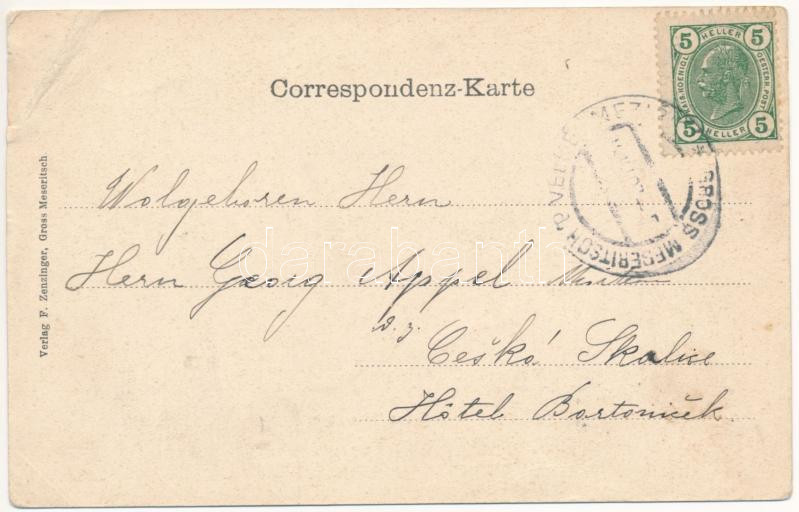 Correspondenz-Karte
5 HELLER 5
KAIS. KOENIGL. OESTERR. POST
5 HELLER 5
GROSS MESERITSCH
Wolgeboren Herrn
Herrn Georg Appel
d. z.
Česká Skalice
Hôtel Bartoniček
Verlag F. Zenzinger, Gross Meseritsch.
darabanth